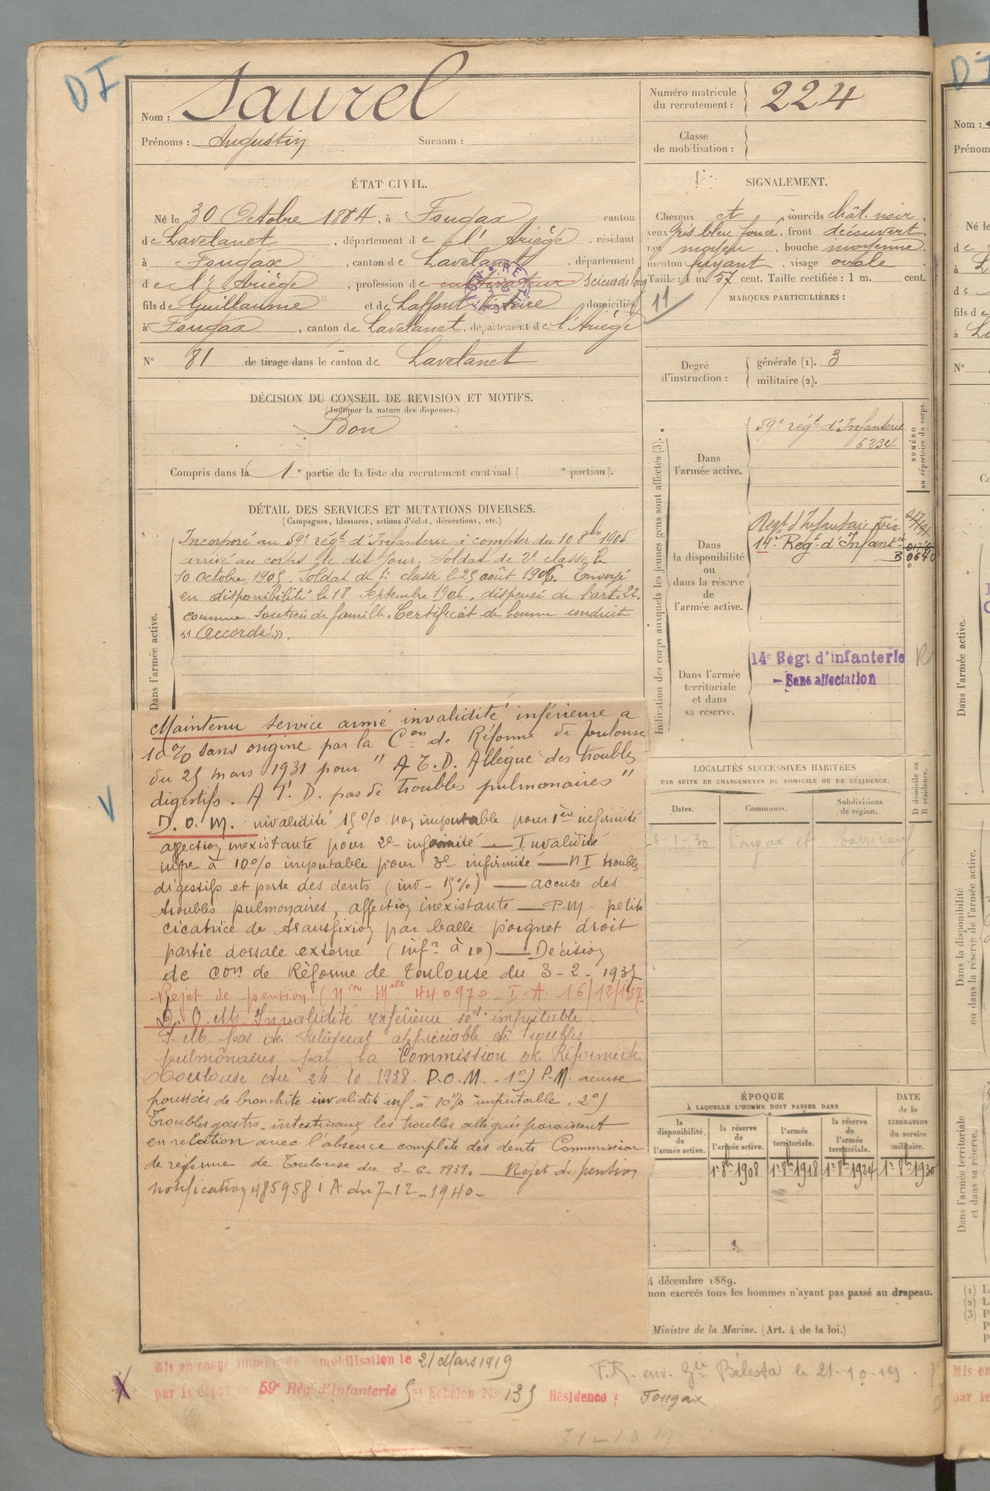 DI
Nom : Saurel
Prénoms : Augustin Surnom :
Numéro matricule du recrutement : 224
Classe de mobilisation :
ÉTAT CIVIL.
Né le 30 Octobre 1884, à Fougax canton
de Lavelanet, département de l'Ariège, résidant
à Fougax, canton de Lavelanet, département
de l'Ariège, profession de cultivateur Scieur de long
fils de Guillaume et de Laffont domiciliés
à Fougax, canton de Lavelanet, département de l'Ariège
N° 81 de tirage dans le canton de Lavelanet
SIGNALEMENT.
Cheveux et sourcils chât. noir,
yeux gris bleu foncé, front découvert
nez moyen, bouche moyenne,
menton fuyant, visage ovale
Taille : 1 m. 57 cent. Taille rectifiée : 1 m. cent.
11
MARQUES PARTICULIÈRES :
Degré d'instruction : générale (1). 3
militaire (2).
DÉCISION DU CONSEIL DE REVISION ET MOTIFS.
(Indiquer la nature des dispenses.)
Bon
Compris dans la 1e partie de la liste du recrutement cantonal ( e portion).
DÉTAIL DES SERVICES ET MUTATIONS DIVERSES.
(Campagnes, blessures, actions d'éclat, décorations, etc.)
Dans l'armée active.
Incorporé au 59e régt d'Infanterie à compter du 10 8bre 1905
arrivé au corps le dit jour. Soldat de 2e classe le
10 octobre 1905. Soldat de 1e classe le 25 août 1906. Envoyé
en disponibilité le 18 Septembre 1906, dispensé de l'art. 22.
comme soutien de famille. Certificat de bonne conduite
"Accordé".
Maintenu service armé invalidité inférieure à
10% sans origine par la Con de Réforme de Toulouse
du 25 mars 1931 pour " A.T.D. Allègue des troubles
digestifs. A.T.D. pas de troubles pulmonaires"
D.O.M. invalidité 15% non imputable pour 1ère infirmité
affection inexistante pour 2e infirmité — Invalidité
infre à 10% imputable pour 3e infirmité — NI troubles
digestifs et perte des dents (inv - 15%) — accuse des
troubles pulmonaires, affection inexistante — P.M. petite
cicatrice de transfixion par balle poignet droit
partie dorsale externe (infre à 10) — Décision
de Con de Réforme de Toulouse du 3-2-1937
Rejet de pension (Non Melle 440970 I.A. 16/12/1937
D.O.M. Invalidité inférieure 10% imputable.
P.M. pas de reliquat appréciable de troubles
pulmonaires par la Commission de Réforme de
Toulouse du 24 10 1938. P.O.M. 1°) P.M. accuse
poussées de bronchite invalidité inf. à 10% imputable. 2°)
Troubles gastro-intestinaux les troubles allégués paraissent
en relation avec l'absence complète des dents Commission
de réforme de Toulouse du 3-6-1939. — Rejet de pension
notification 485958 I A du 7-12-1940-
Indication des corps auxquels les jeunes gens sont affectés (3).
NUMÉRO au répertoire du corps.
Dans l'armée active.
59e régt d'Infanterie
6234
Dans la disponibilité ou dans la réserve de l'armée active.
Regt d'Infanterie Foix
14e Regt d'Infantie
Dans l'armée territoriale et dans sa réserve.
14e Régt d'infanterie
— Sans affectation
LOCALITÉS SUCCESSIVES HABITÉES
PAR SUITE DE CHANGEMENTS DE DOMICILE OU DE RÉSIDENCE.
Dates. Communes. Subdivisions de région. D domicile ou R résidence.
Fougax et Barrineuf
ÉPOQUE
À LAQUELLE L'HOMME DOIT PASSER DANS
la disponibilité de l'armée active. la réserve de l'armée active. l'armée territoriale. la réserve de l'armée territoriale. DATE de la LIBÉRATION du service militaire.
1er 8bre 1908 1er 8bre 1918 1er 8bre 1924 1er 8bre 1930
4 décembre 1889.
non exercés tous les hommes n'ayant pas passé au drapeau.
Ministre de la Marine. (Art. 4 de la loi.)
Mis en congé illimité de démobilisation le 21 Mars 1919
par le dépôt du 59e Régt d'Infanterie 5e Echelon N° 135 Résidence : Fougax
F.R. env. Gie Bélesta le 21-10-19.